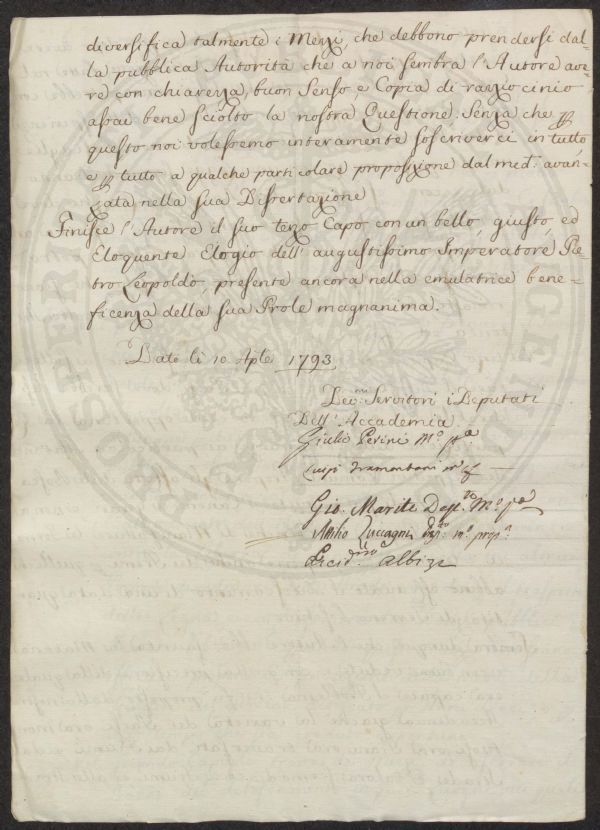 diversifica talmente i Mezzi, che debbono prendersi dal-
la pubblica Autorità che a noi sembra l'Autore ave-
re con chiarezza, buon Senso e Copia di raziocinio
assai bene sciolto la nostra Questione. Senza che p
questo noi volessimo interamente soscriverci in tutto,
e p tutto a qualche particolare proposizione dal med.º avan-
zata nella sua Dissertazione
Finisce l'Autore il suo terzo Capo con un bello, giusto, ed
Eloquente Elogio dell'augustissimo Imperatore Pie-
tro Leopoldo, presente ancora nella emulatrice bene-
ficenza della sua Prole magnanima.
Dato li 10 Aple 1793
Dev.mi Servitori i Deputati
Dell'Accademia
Giulio Perini Mº pa
Luigi Tramontani
Gio. Mariti Dep.to Mº pa
Attilio Zuccagni Dep.to mº prop.a
Albizi
PROSPERITATI